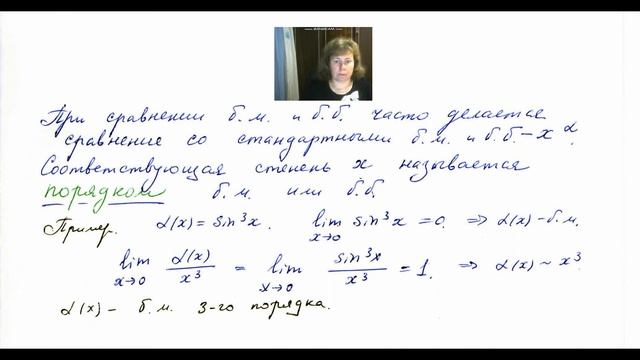 При сравнении б.м. и б.б. часто делается
сравнение со стандартными б.м. и б.б. – x^α.
Соответствующая степень x называется
порядком б.м. или б.б.
Пример. α(x) = sin³x. lim x→0 sin³x = 0. ⇒ α(x) – б.м.
lim x→0 α(x)/x³ = lim x→0 sin³x/x³ = 1. ⇒ α(x) ~ x³.
α(x) – б.м. 3-го порядка.